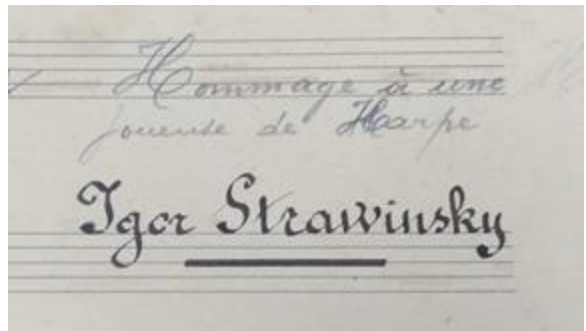 Hommage à une
joueuse de Harpe
Igor Strawinsky